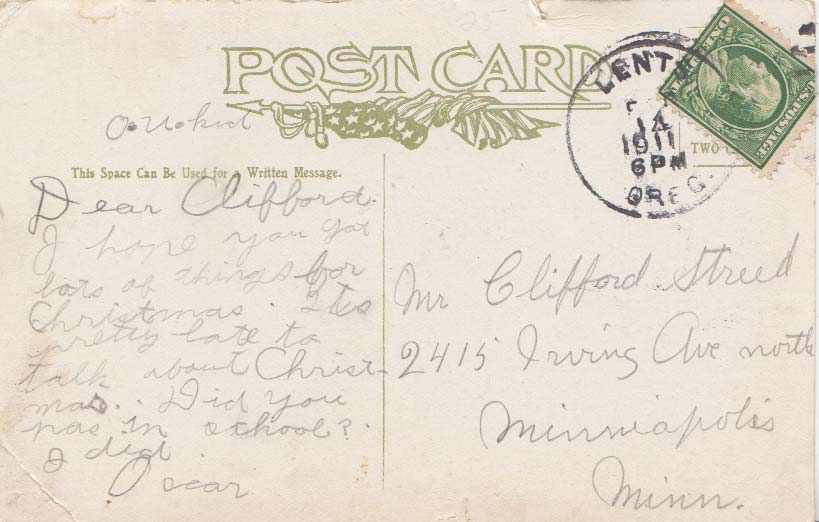 POST CARD
O.U.kid
This Space Can Be Used for a Written Message.
Dear Clifford.
I hope you got
lots of things for
Christmas. Its
pretty late to
talk about Christ-
mas. Did you
pas in school?
I did
Oscar
LENTS
14
1911
6PM
OREG.
TWO
Mr Clifford Streed
2415 Irving Ave north
Minniapolis
Minn.